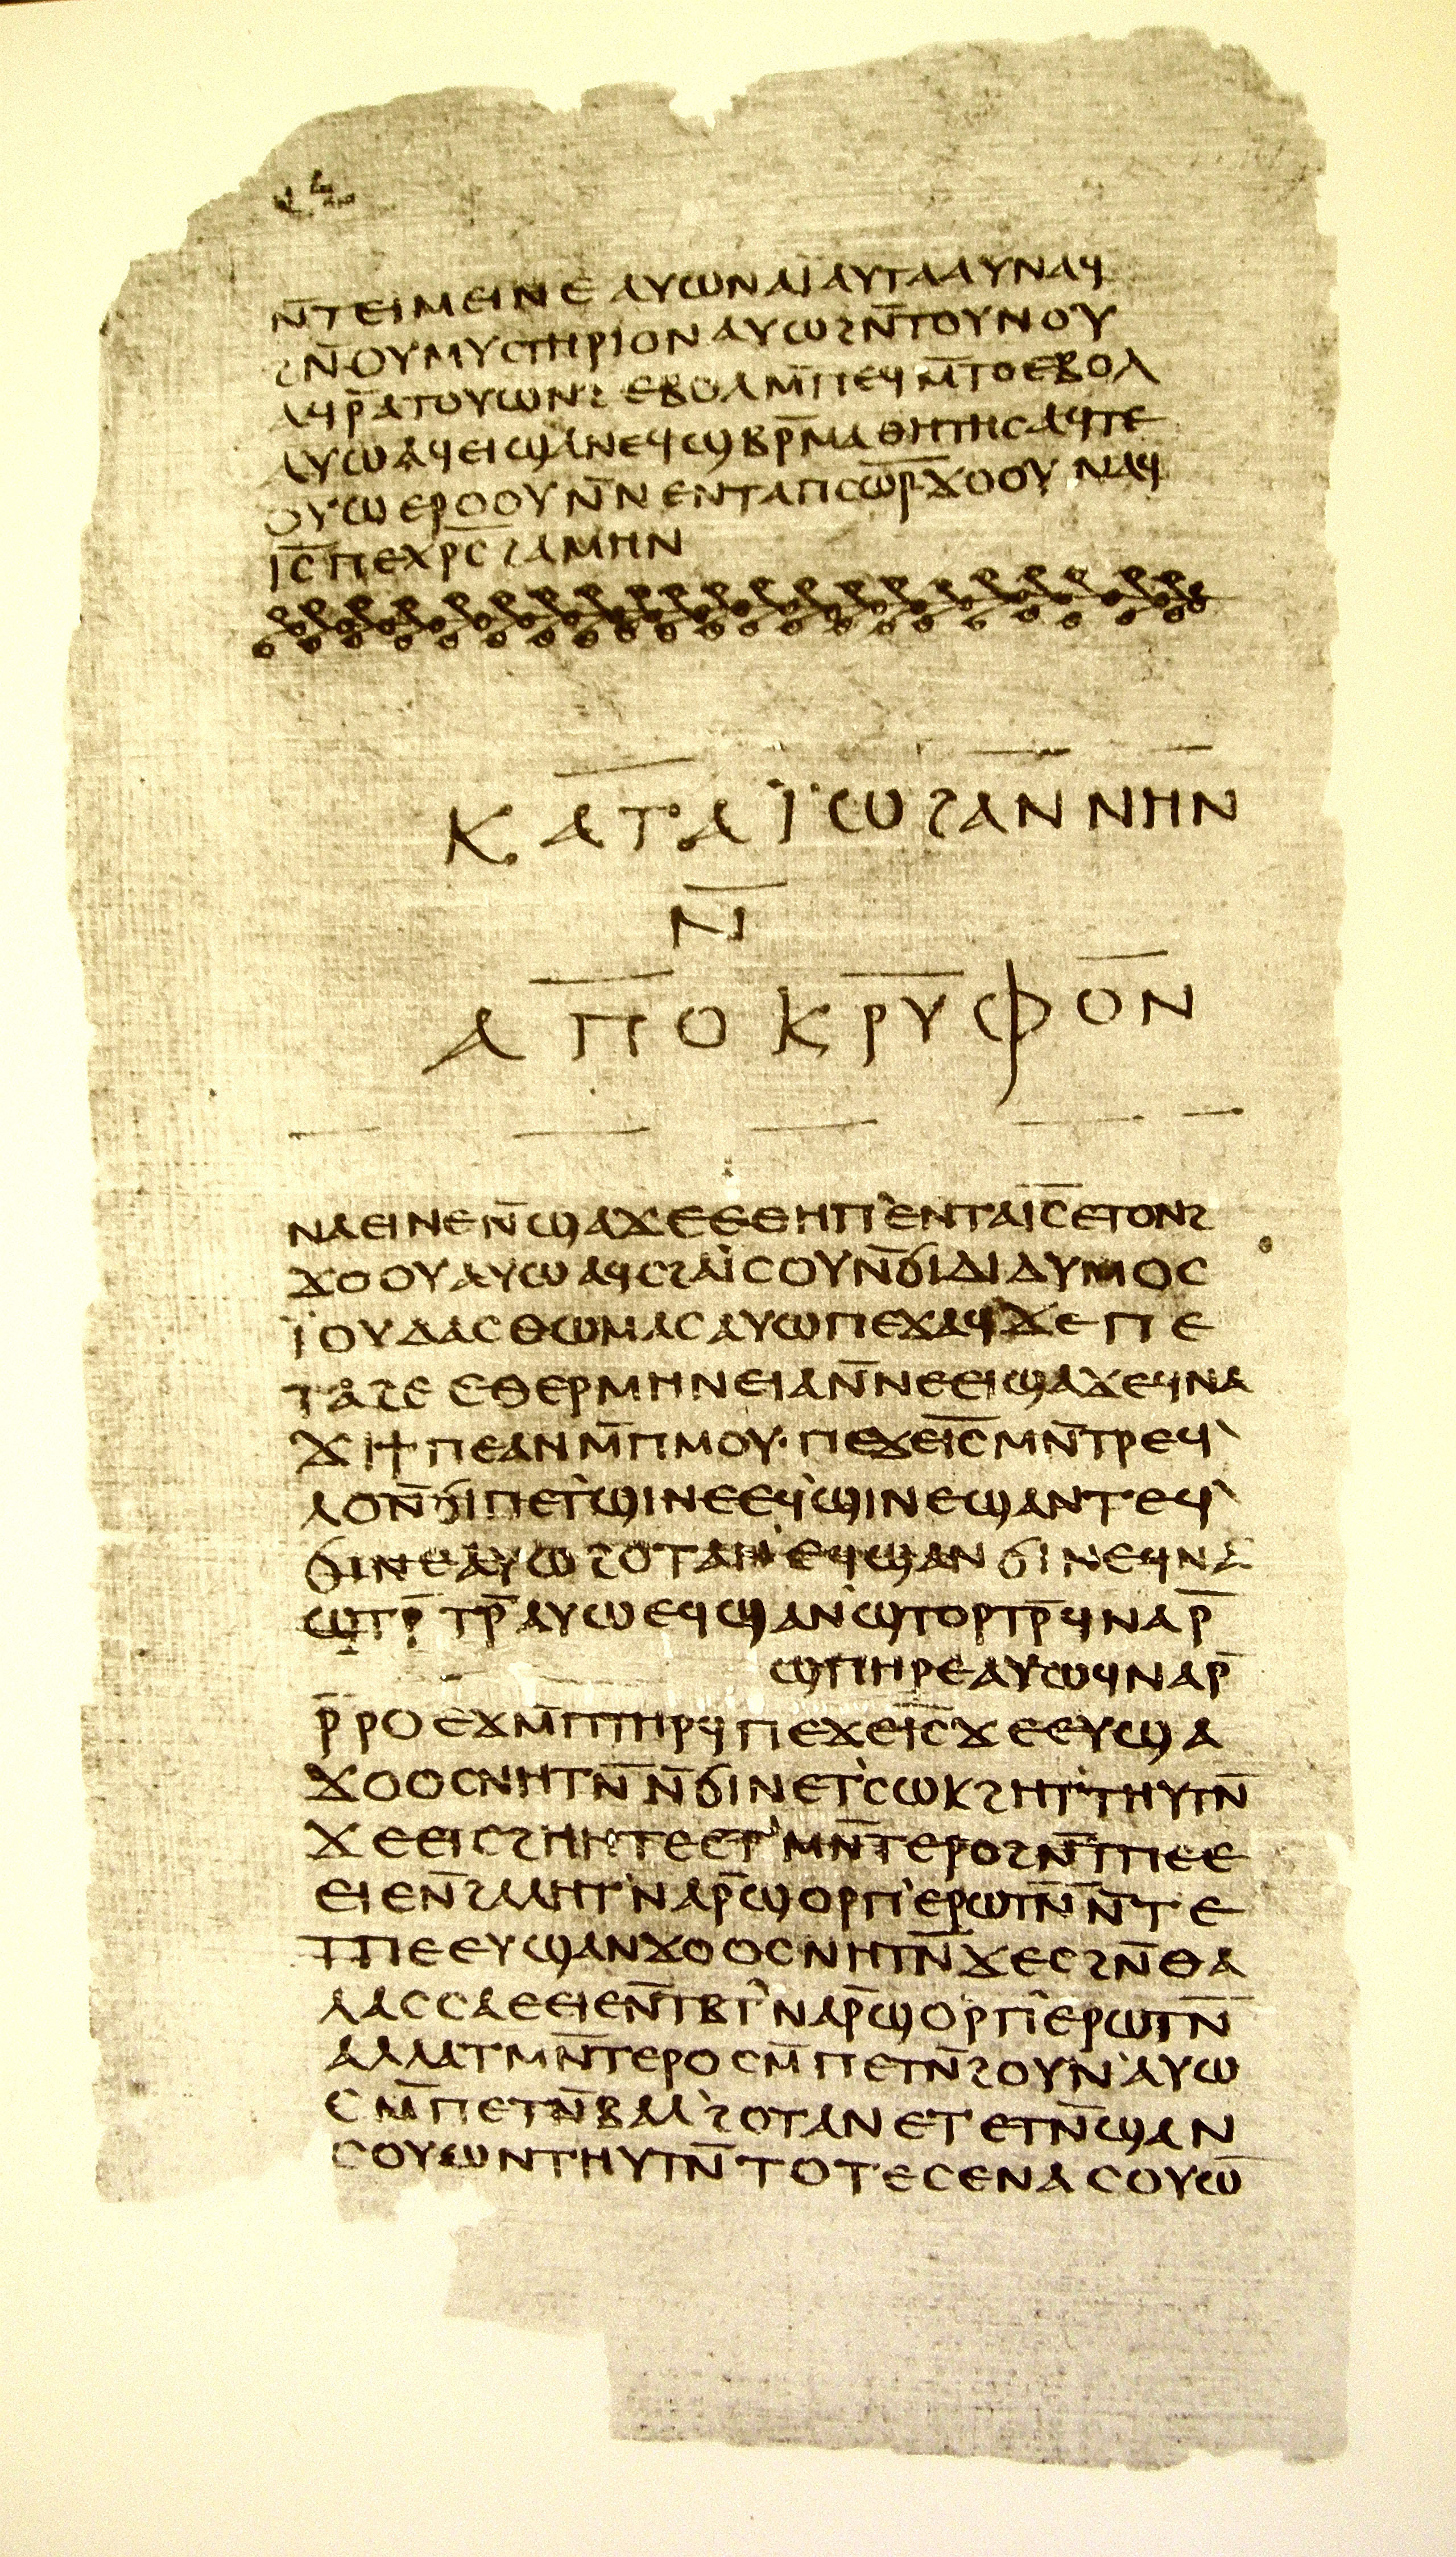 ⲛ̄ⲧⲉⲓⲙⲉⲓⲛⲉ ⲁⲩⲱ ⲛⲁⲓ̈ ⲁⲩⲧⲁⲁⲩ ⲛⲁϥ
ϩⲛ̄ ⲟⲩⲙⲩⲥⲧⲏⲣⲓⲟⲛ ⲁⲩⲱ ϩⲛ̄ ⲧⲟⲩⲛⲟⲩ
ⲁϥⲣ̄ ⲁⲧⲟⲩⲱⲛϩ ⲉⲃⲟⲗ ⲙ̄ⲡⲉϥⲙ̄ⲧⲟ ⲉⲃⲟⲗ
ⲁⲩⲱ ⲁϥⲉⲓ ϣⲁ ⲛⲉϥϣⲃⲣ̄ⲙⲁⲑⲏⲧⲏⲥ ⲁϥⲧⲉ
ⲟⲩⲱ ⲉⲣⲟⲟⲩ ⲛ̄ⲛⲉⲛⲧⲁⲡⲥⲱ̄ⲣ̄ ϫⲟⲟⲩ ⲛⲁϥ
ⲓ̄ⲥ̄ ⲡⲉⲭ̄ⲣ̄ⲥ̄ ϩⲁⲙⲏⲛ
ⲕⲁⲧⲁ ⲓ̈ⲱϩⲁⲛⲛⲏⲛ
ⲛ̄
ⲁⲡⲟⲕⲣⲩⲫⲟⲛ
ⲛⲁⲉⲓ ⲛⲉ ⲛ̄ϣⲁϫⲉ ⲉⲑⲏⲡ ⲉⲛⲧⲁ ⲓ̄ⲥ̄ ⲉⲧⲟⲛϩ
ϫⲟⲟⲩ ⲁⲩⲱ ⲁϥⲥϩⲁⲓ̈ⲥⲟⲩ ⲛ̄ϭⲓ ⲇⲓⲇⲩⲙⲟⲥ
ⲓ̈ⲟⲩⲇⲁⲥ ⲑⲱⲙⲁⲥ ⲁⲩⲱ ⲡⲉϫⲁϥ ϫⲉ ⲡⲉ
ⲧⲁϩⲉ ⲉⲑⲉⲣⲙⲏⲛⲉⲓⲁ ⲛ̄ⲛⲉⲉⲓϣⲁϫⲉ ϥⲛⲁ
ϫⲓ ϯⲡⲉ ⲁⲛ ⲙ̄ⲡⲙⲟⲩ· ⲡⲉϫⲉ ⲓ̄ⲥ̄ ⲙⲛ̄ⲧⲣⲉϥ
ⲗⲟ ⲛ̄ϭⲓ ⲡⲉⲧϣⲓⲛⲉ ⲉϥϣⲓⲛⲉ ϣⲁⲛⲧⲉϥ
ϭⲓⲛⲉ ⲁⲩⲱ ϩⲟⲧⲁⲛ ⲉϥϣⲁⲛϭⲓⲛⲉ ϥⲛⲁ
ϣⲧⲣ̄ⲧⲣ̄ ⲁⲩⲱ ⲉϥϣⲁⲛϣⲧⲟⲣⲧⲣ̄ ϥⲛⲁⲣ̄
ϣⲡⲏⲣⲉ ⲁⲩⲱ ϥⲛⲁⲣ̄
ⲣ̄ⲣⲟ ⲉϫⲙ̄ ⲡⲧⲏⲣϥ ⲡⲉϫⲉ ⲓ̄ⲥ̄ ϫⲉ ⲉⲩϣⲁ
ϫⲟⲟⲥ ⲛⲏⲧⲛ̄ ⲛ̄ϭⲓ ⲛⲉⲧⲥⲱⲕ ϩⲏⲧ ⲧⲏⲩⲧⲛ̄
ϫⲉ ⲉⲓⲥϩⲏⲏⲧⲉ ⲉⲧⲙⲛ̄ⲧⲉⲣⲟ ϩⲛ̄ ⲧⲡⲉ ⲉ
ⲉⲓⲉ ⲛ̄ϩⲁⲗⲏⲧ ⲛⲁⲣ̄ ϣⲟⲣⲡ ⲉⲣⲱⲧⲛ̄ ⲛ̄ⲧⲉ
ⲧⲡⲉ ⲉⲩϣⲁⲛϫⲟⲟⲥ ⲛⲏⲧⲛ̄ ϫⲉ ⲥϩⲛ̄ ⲑⲁ
ⲗⲁⲥⲥⲁ ⲉⲉⲓⲉ ⲛ̄ⲧⲃⲧ ⲛⲁⲣ̄ ϣⲟⲣⲡ ⲉⲣⲱⲧⲛ̄
ⲁⲗⲗⲁ ⲧⲙⲛ̄ⲧⲉⲣⲟ ⲥⲙ̄ⲡⲉⲧⲛ̄ϩⲟⲩⲛ ⲁⲩⲱ
ⲥⲙ̄ⲡⲉⲧⲛ̄ⲃⲁⲗ ϩⲟⲧⲁⲛ ⲉⲧⲉⲧⲛ̄ϣⲁⲛ
ⲥⲟⲩⲱⲛ ⲧⲏⲩⲧⲛ̄ ⲧⲟⲧⲉ ⲥⲉⲛⲁⲥⲟⲩⲱ̄